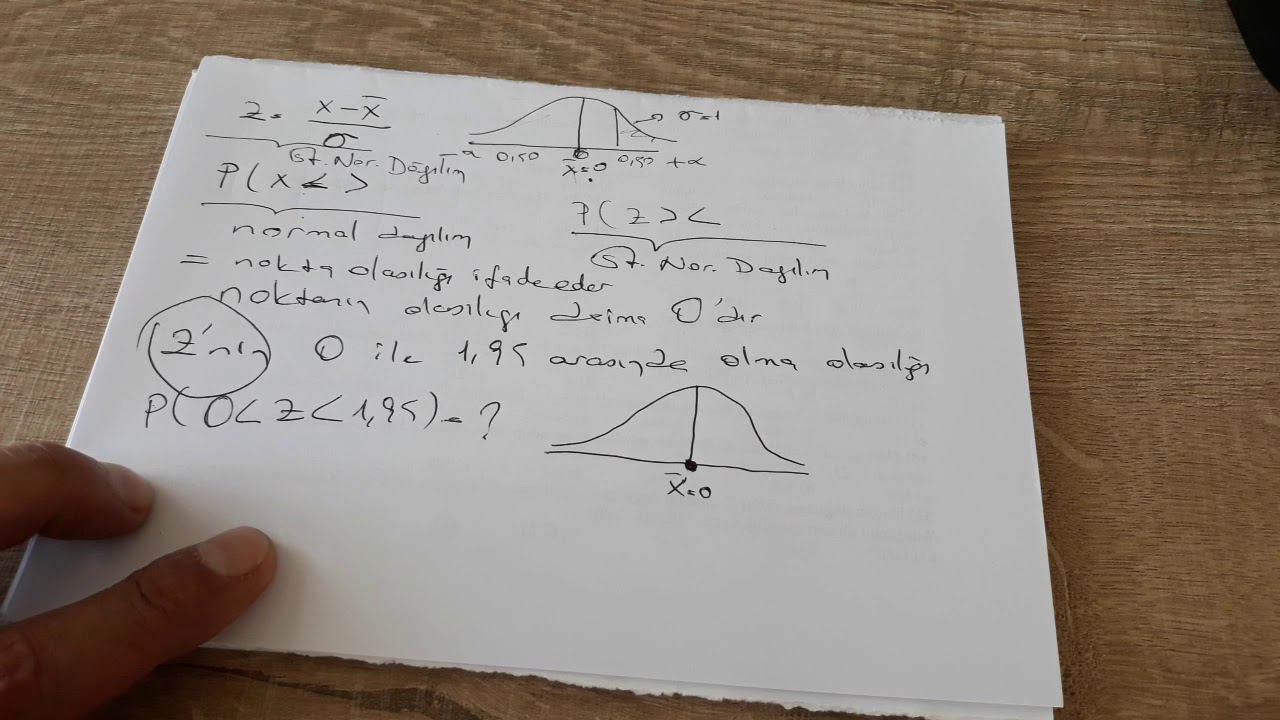 z = x - x̄ / σ
σ=1
0,50 x̄=0 0,50 +∝
St. Nor. Dağılım
P( x < >
normal dağılım
P( z > <
St. Nor. Dağılım
= nokta olasılığı ifade eder
noktanın olasılığı daima 0'dır
z'nin 0 ile 1,95 arasında olma olasılığı
P( 0 < z < 1,95) = ?
x̄=0